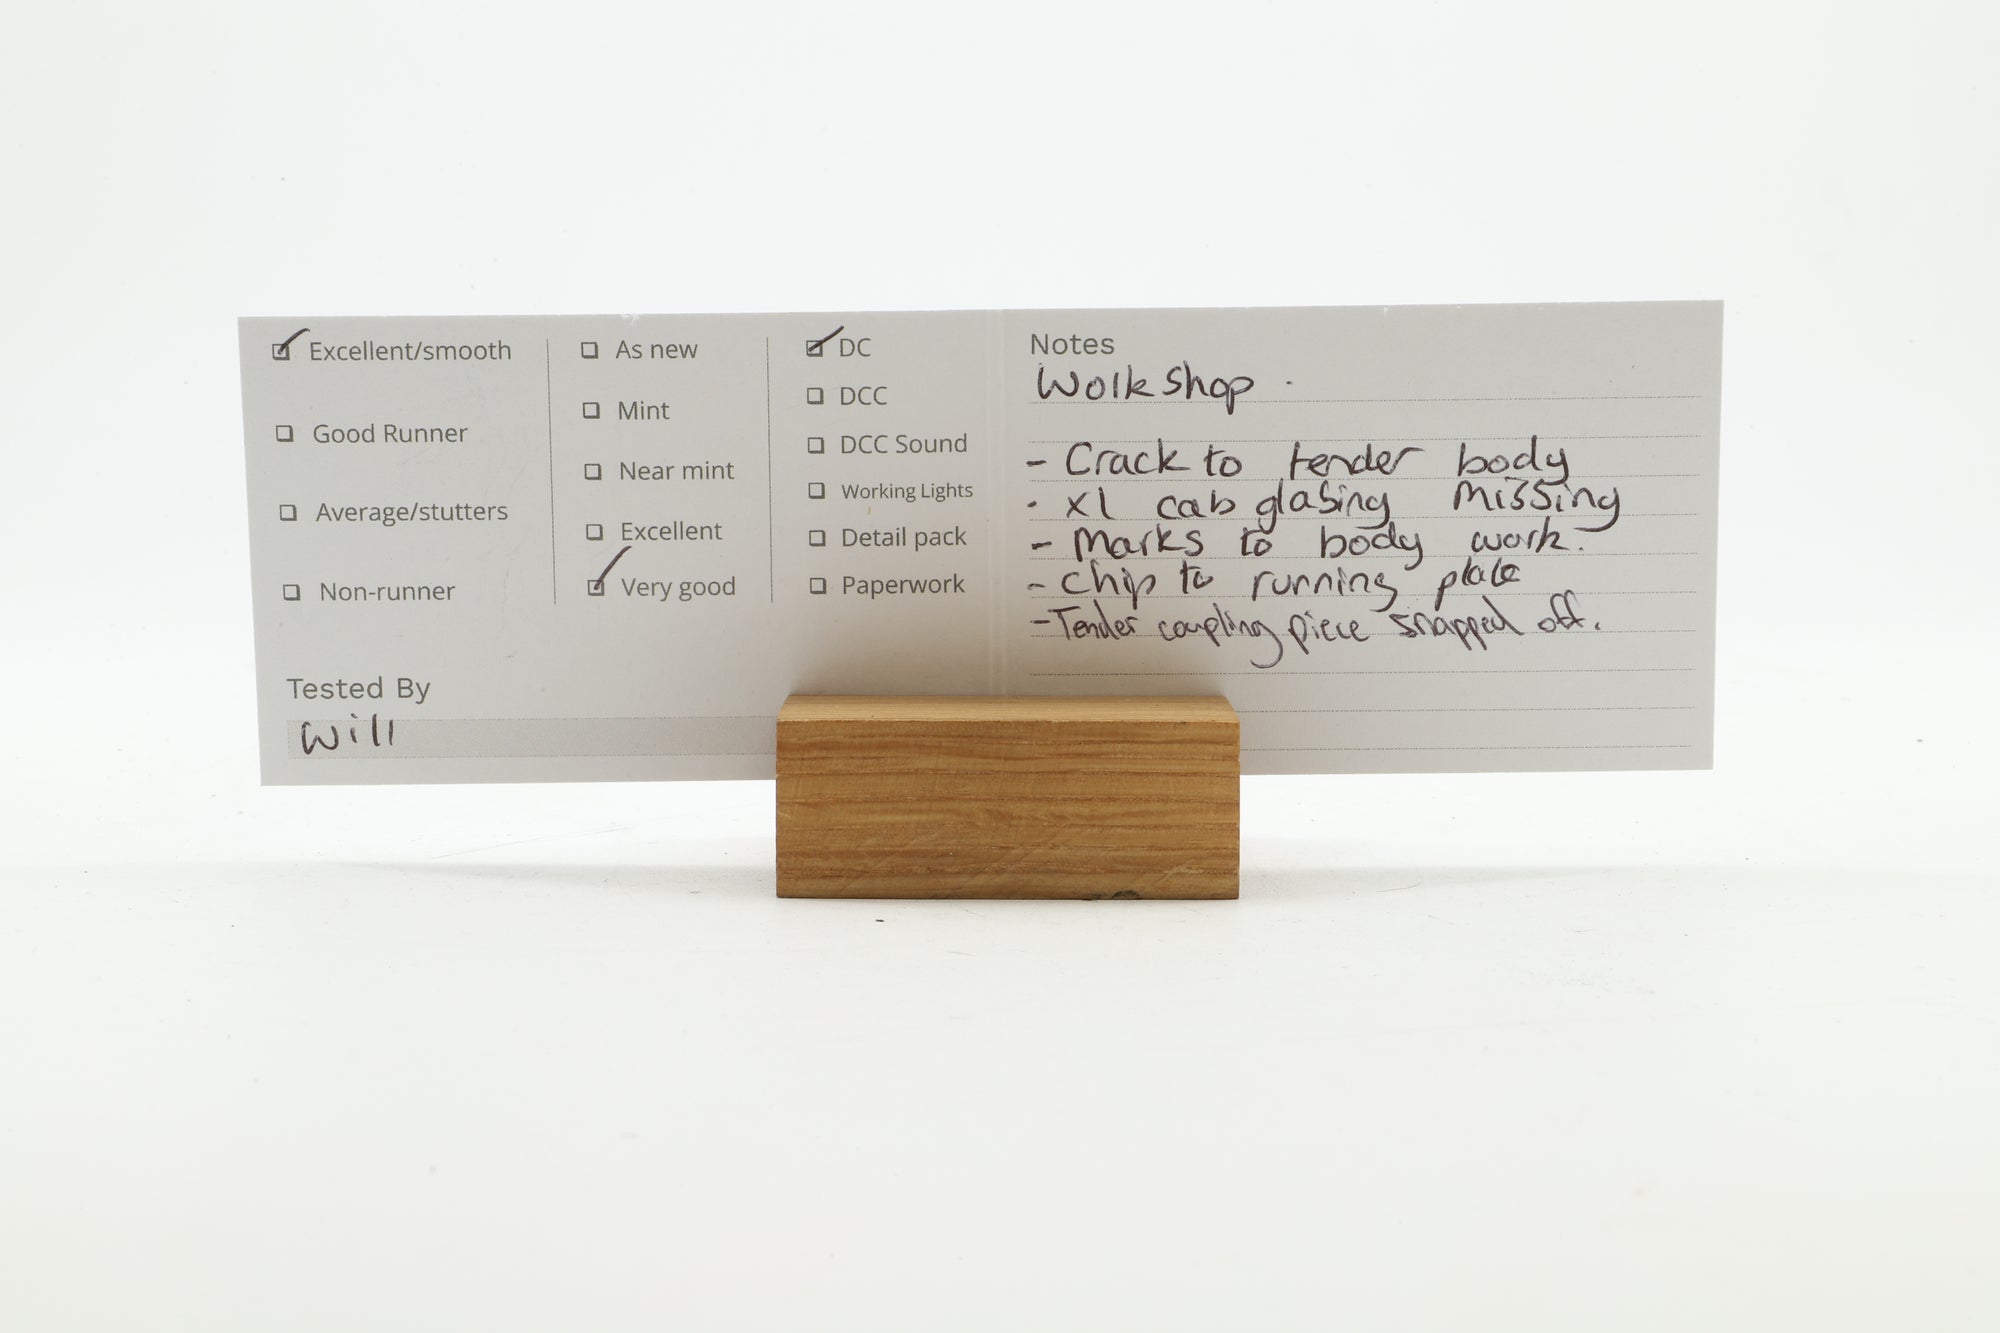 Excellent/smooth
Good Runner
Average/stutters
Non-runner
Tested By
Will
As new
Mint
Near mint
Excellent
Very good
DC
DCC
DCC Sound
Working Lights
Detail pack
Paperwork
Notes
Workshop.
- Crack to tender body
- x1 cab glasing missing
- Marks to body work.
- chip to running plate
- Tender coupling piece snapped off.